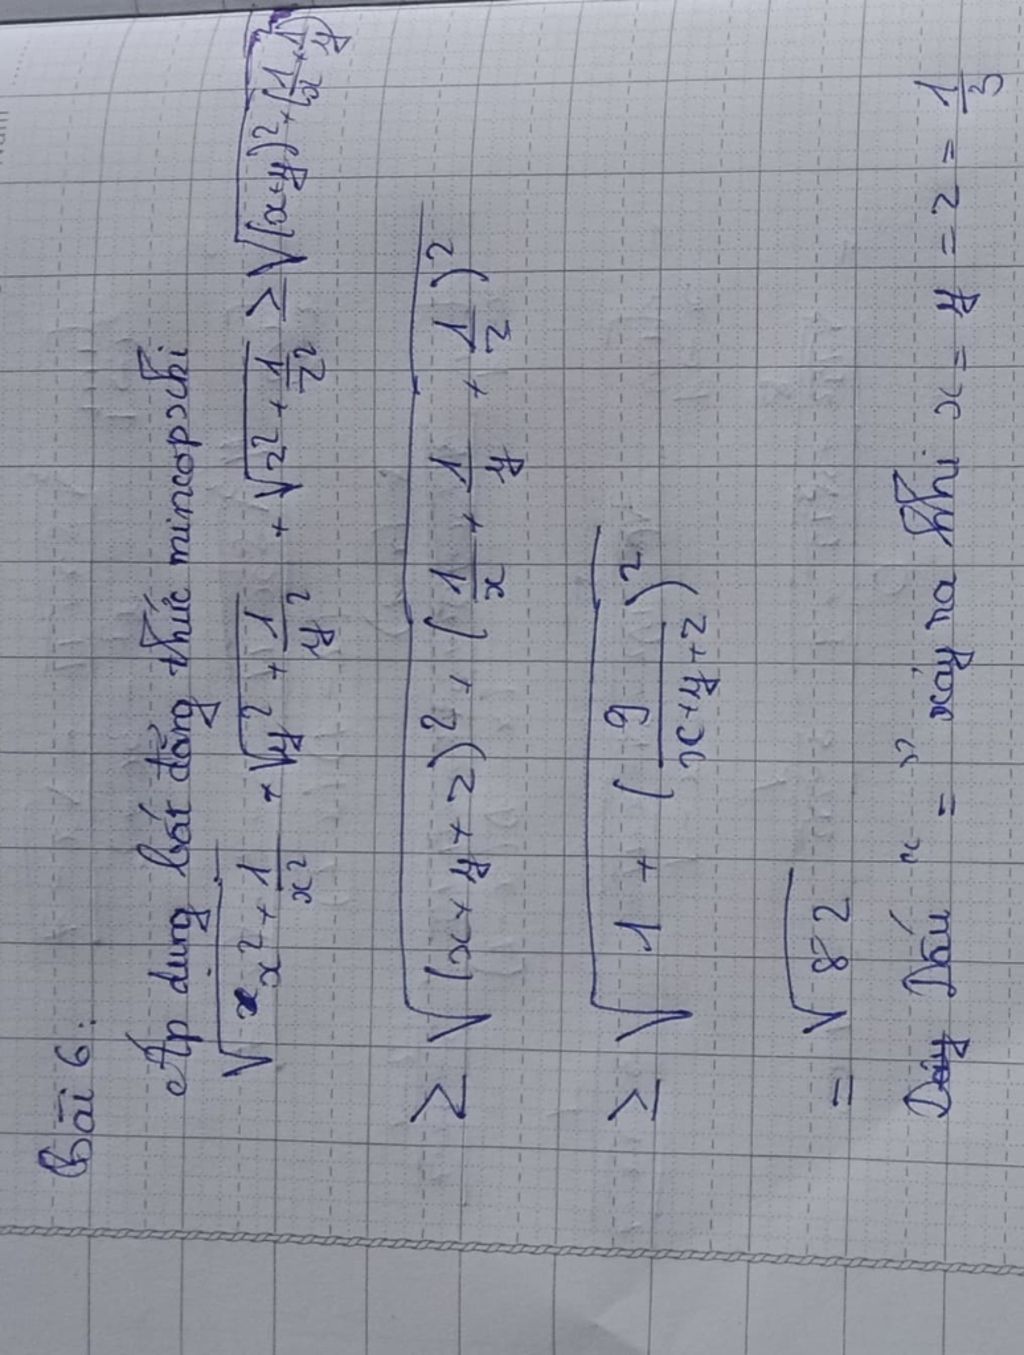 Bài 6:
Áp dụng bất đẳng thức mincopxki
√(x² + 1/x²) + √(y² + 1/y²) + √(z² + 1/z²) ≥ √((x+y)² + (1/x + 1/y)
≥ √((x+y+z)² + (1/x + 1/y + 1/z)²)
≥ √(1 + (9/(x+y+z))²)
= √82
Dấu " = " xảy ra khi x = y = z = 1/3